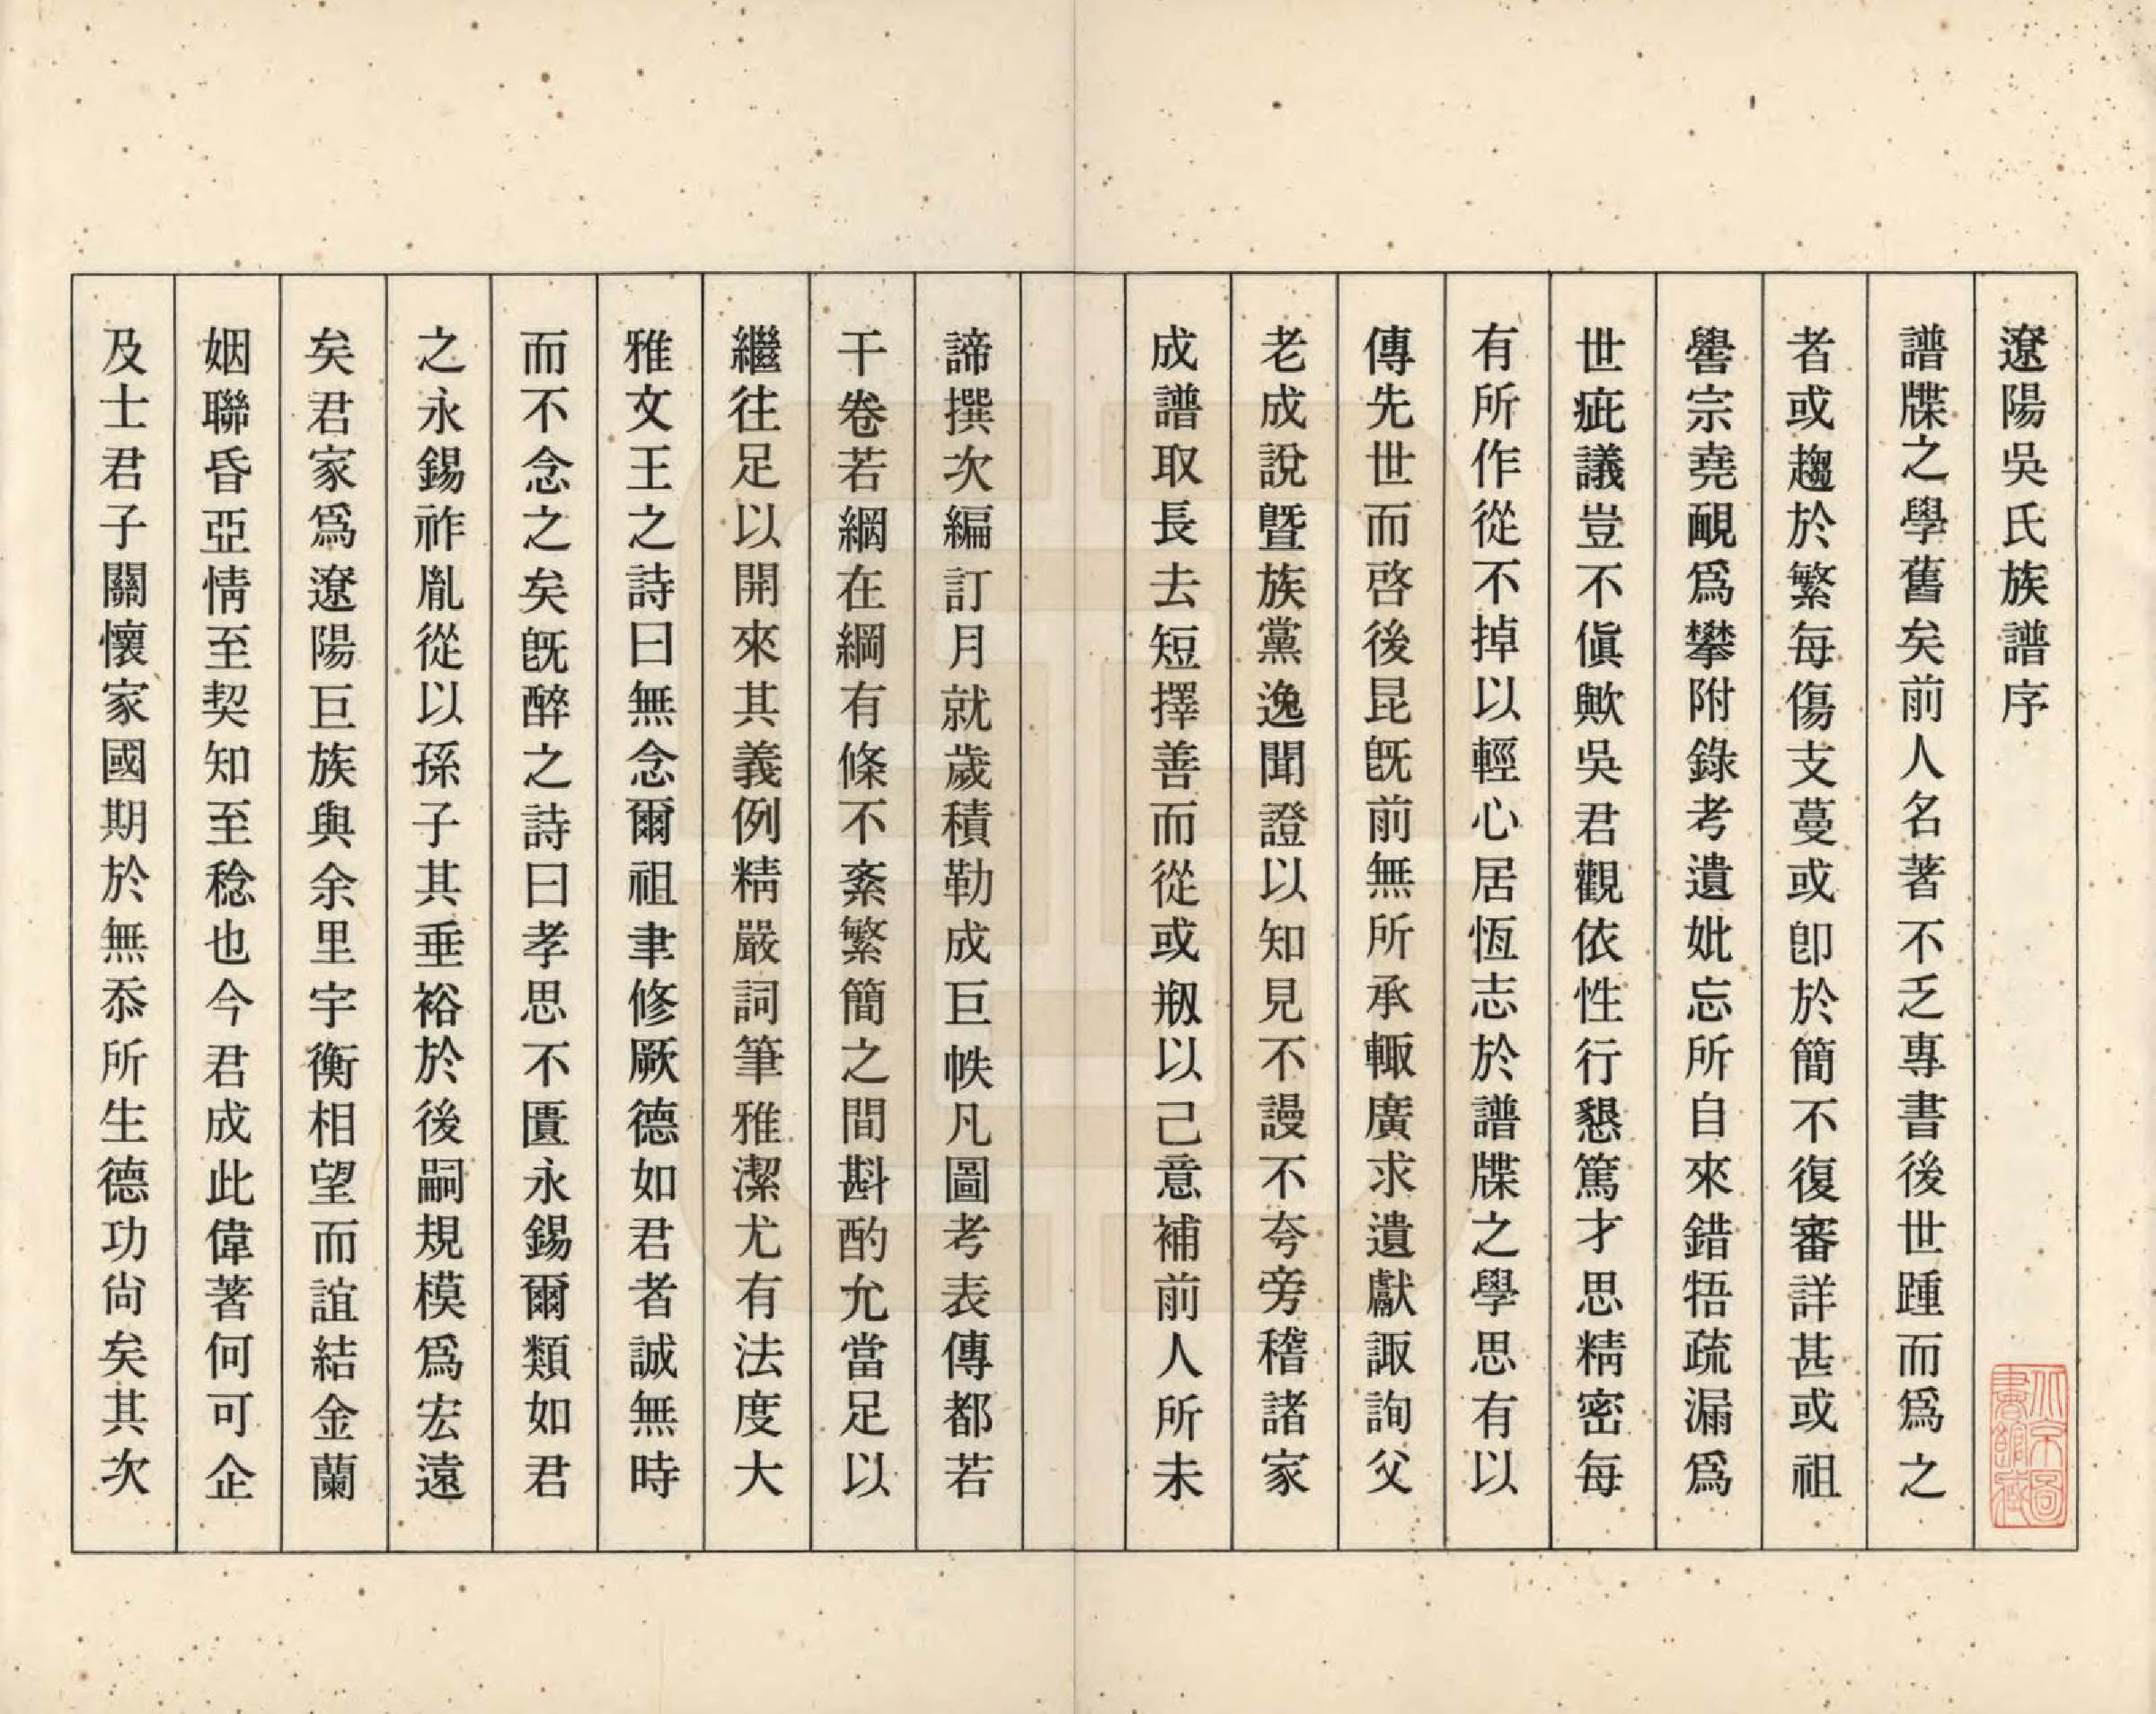 遼陽吳氏族譜序
譜牒之學舊矣前人名著不乏專書後世踵而爲之
者或趨於繁每傷支蔓或卽於簡不復審詳甚或祖
嚳宗堯靦爲攀附錄考遺妣忘所自來錯牾疏漏爲
世疵議豈不傎歟吳君觀依性行懇篤才思精密每
有所作從不掉以輕心居恆志於譜牒之學思有以
傳先世而啓後昆旣前無所承輒廣求遺獻諏詢父
老成說曁族黨逸聞證以知見不謾不夸旁稽諸家
成譜取長去短擇善而從或剏以己意補前人所未
諦撰次編訂月就歲積勒成巨帙凡圖考表傳都若
干卷若網在綱有條不紊繁簡之間斟酌允當足以
繼往足以開來其義例精嚴詞筆雅潔尤有法度大
雅文王之詩曰無念爾祖聿修厥德如君者誠無時
而不念之矣旣醉之詩曰孝思不匱永錫爾類如君
之永錫祚胤從以孫子其垂裕於後嗣規模爲宏遠
矣君家爲遼陽巨族與余里宇衡相望而誼結金蘭
姻聯昏亞情至契知至稔也今君成此偉著何可企
及士君子關懷家國期於無忝所生德功尙矣其次
北京圖書館藏